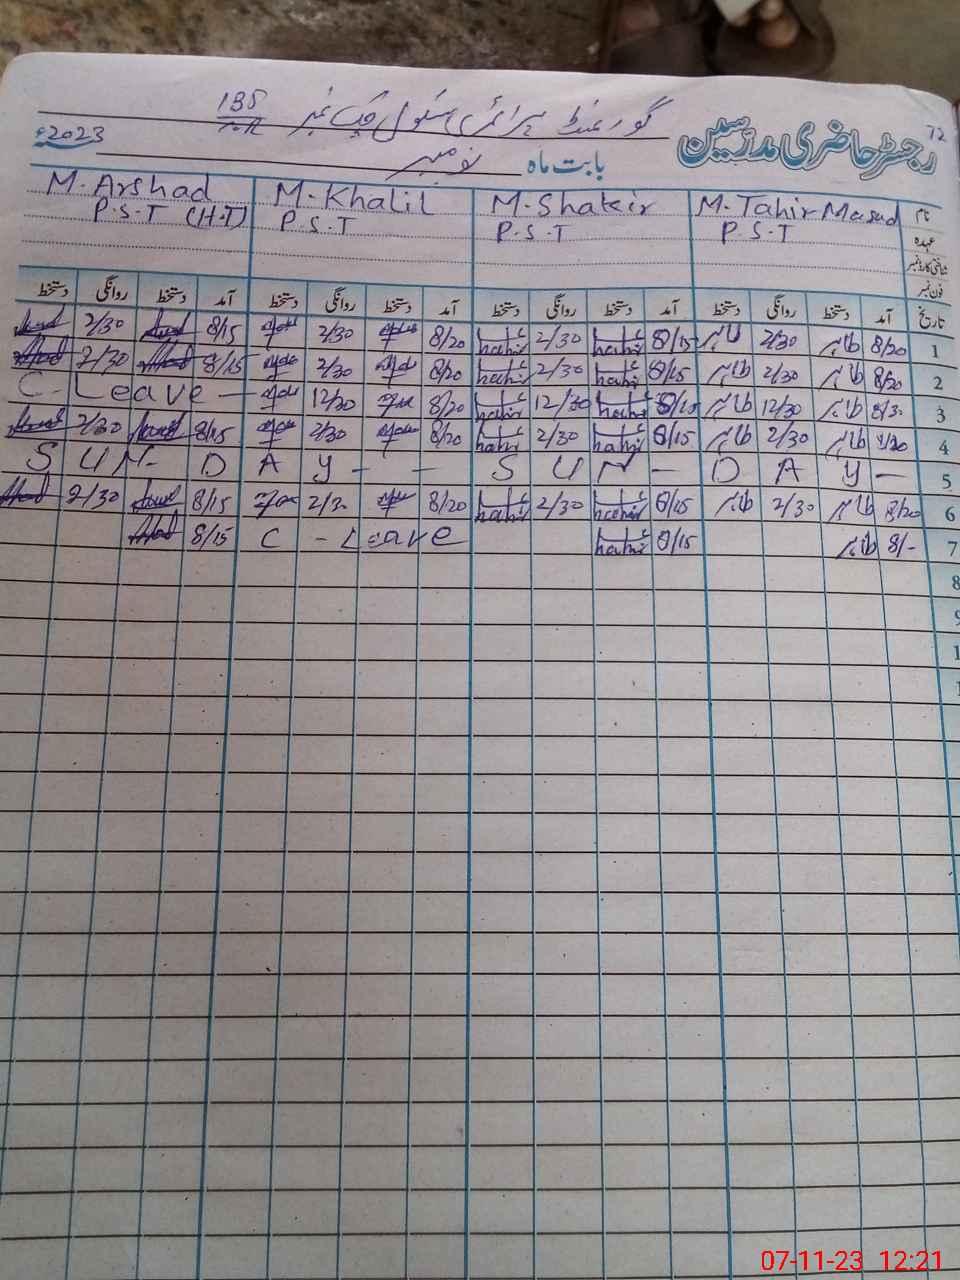 72
رجسٹر حاضری مدرسین
گورنمنٹ پرائمری سکول چک نمبر 135
بابت ماہ نومبر 2023ء
نام M. Tahir Masud M. Shakir M. Khalil M. Arshad
عہدہ P.S.T P.S.T P.S.T P.S.T (H.T)
شناختی کارڈ نمبر
فون نمبر
تاریخ آمد دستخط روانگی دستخط آمد دستخط روانگی دستخط آمد دستخط روانگی دستخط آمد دستخط روانگی دستخط
1 8/20 طاہر 2/30 طاہر 8/15 2/30 8/20 2/30 8/15 2/30
2 8/20 طاہر 2/30 طاہر 8/15 2/30 8/20 2/30 8/15 2/30
3 8/30 طاہر 12/30 طاہر 8/15 12/30 8/20 12/30 C-Leave -
4 8/20 طاہر 2/30 طاہر 8/15 2/30 8/20 2/30 8/15 2/30
5 S U N - D A Y - - S U N - D A Y -
6 8/20 طاہر 2/30 طاہر 8/15 2/30 8/20 2/30 8/15 2/30
7 8/- طاہر 8/15 C - Leave 8/15
8
9
1
1
07-11-23 12:21